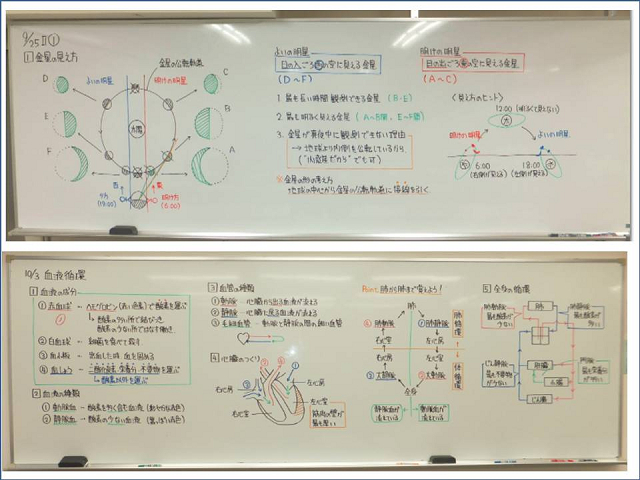 9/25 II ①
1 金星の見え方
よいの明星
明けの明星
金星の公転軌道
D
C
E
B
F
A
太陽
西
東
夕方
(18:00)
明け方
(6:00)
よいの明星
日の入ごろ西の空に見える金星
(D〜F)
明けの明星
日の出ごろ東の空に見える金星
(A〜C)
1. 最も長い時間観測できる金星 (B・E)
2. 最も明るく見える金星 (A〜B間、E〜F間)
3. 金星が真夜中に観測できない理由
→ 地球より内側を公転しているから
("内惑星だから"でも可)
※金星の形の考え方
地球の中心から金星の公転軌道に接線を引く
〈見え方のヒント〉
12:00 (明るくて見えない)
太
明けの明星
よいの明星
6:00
18:00
10/3 血液循環
1 血液の成分
① 赤血球 - ヘモグロビン(赤い色素)で酸素を運ぶ
酸素の多い所で結びつき
酸素の少ない所ではなす働き
② 白血球 - 細菌を食べて殺す
③ 血小板 - 出血した時、血を固める
④ 血しょう - 二酸化炭素、養分、不要物を運ぶ
酸素以外を運ぶ
2 血液の種類
① 動脈血 - 酸素を多く含む血液 (あざやかな赤色)
② 静脈血 - 酸素の少ない血液 (黒っぽい赤色)
3 血管の種類
① 動脈 - 心臓から出る血液が流れる
② 静脈 - 心臓へ戻る血液が流れる
③ 毛細血管 - 動脈と静脈の間の細い血管
4 心臓のつくり
右心房
左心房
右心室
左心室
筋肉の壁が
最も厚い
Point 肺から肺まで覚えよう!
肺
肺動脈
肺静脈
右心室
左心房
右心房
左心室
大静脈
大動脈
全身
肺循環
体循環
静脈血が
流れている
動脈血が
流れている
5 全身の循環
肺動脈
最も酸素が
少ない
肺静脈
最も酸素が
多い
肺
肝臓
小腸
じん臓
じん静脈
最も不要物が
少ない
門脈
最も養分が
多い